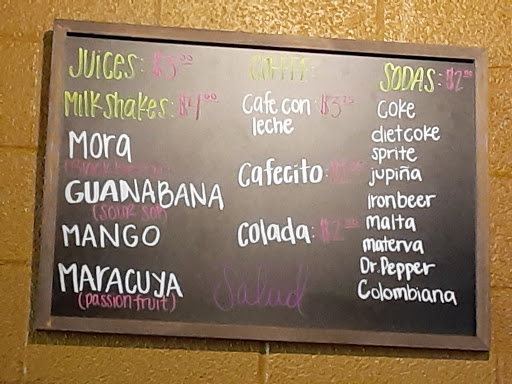 JUICES: $3.00
Milkshakes: $4.00
Mora
(Blackberry)
GUANABANA
(sour sop)
MANGO
MARACUYA
(passion fruit)
COFFEE:
Cafe con leche: $3.25
Cafecito:
Colada:
Salud
SODAS: $2.00
Coke
diet coke
sprite
jupiña
Ironbeer
malta
materva
Dr. Pepper
Colombiana